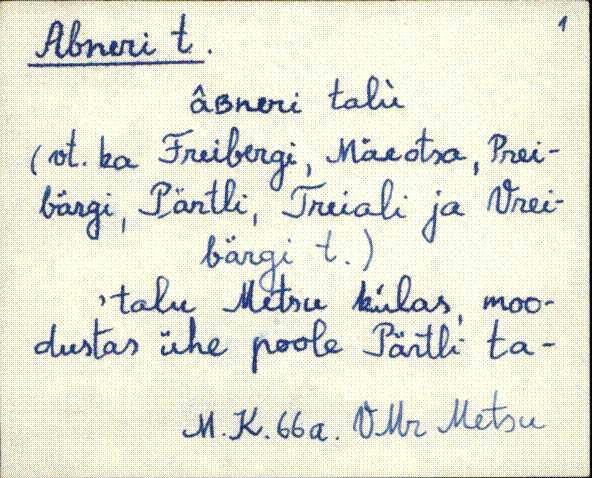 1
Abneri t.
âʙneri talù
(vt. ka Freibergi, Mäeotsa, Prei-
bärgi, Pärtli, Treiali ja Vrei-
bärgi t.)
›talu Metsu külas, moo-
dustas ühe poole Pärtli ta-
M.K. 66a. VMr Metsu